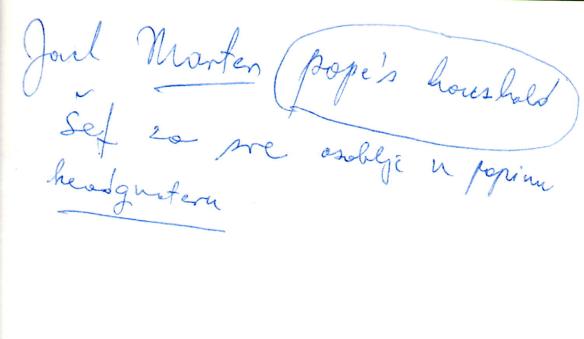 Jacl Marten pope's houshold
šef za sve osoblje u popinu
headquteru